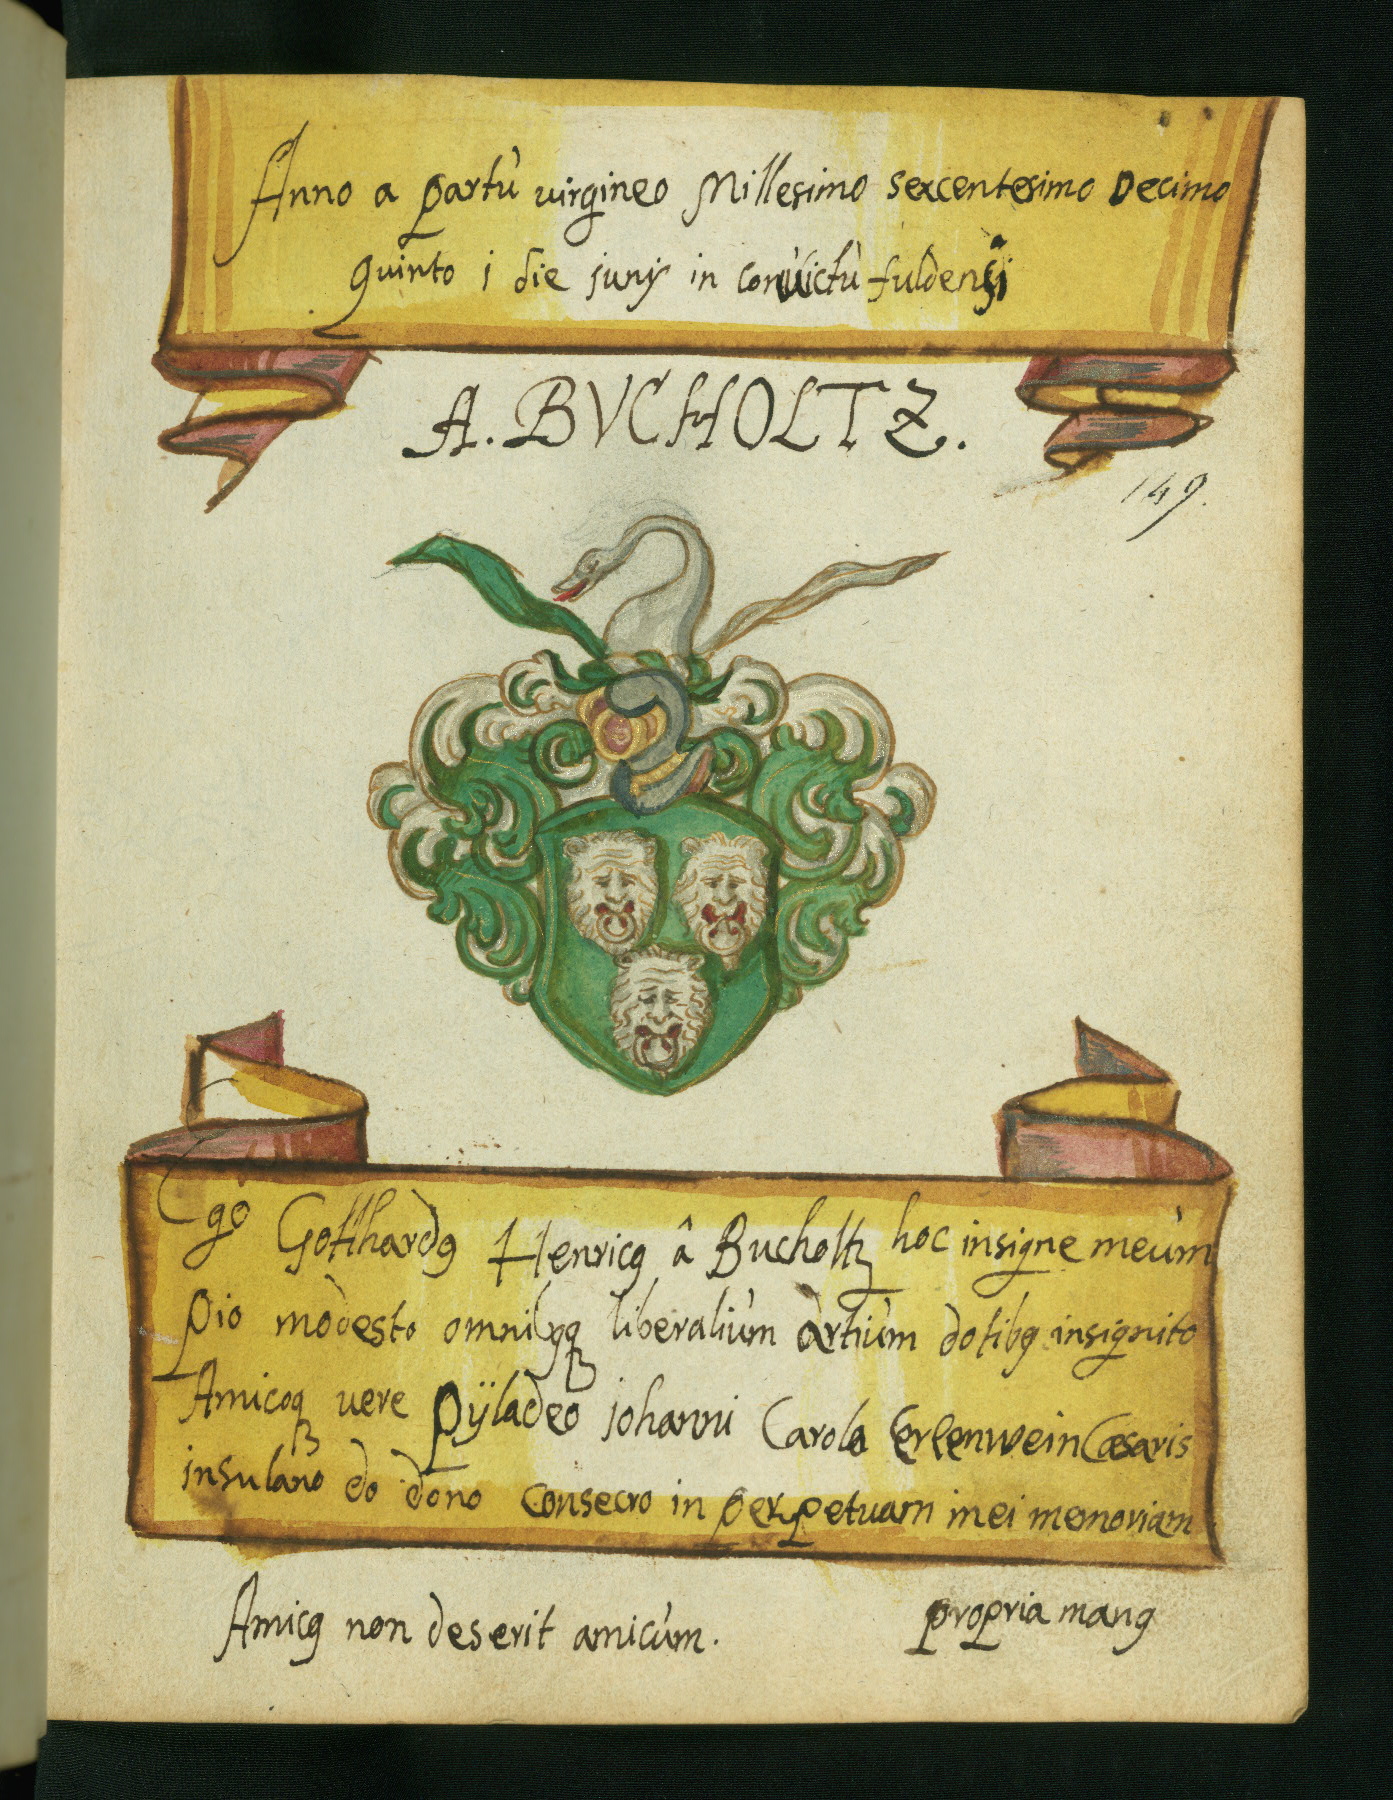 Anno a partù virgineo Millesimo sexcentesimo Decimo
quinto i die junij in convictù fuldensi
A. BVCHOLTZ.
149.
Ego Gotthardꝯ Henricꝯ â Bucholtz hoc insigne meùm
pio modesto omnibꝯqꝫ liberaliùm artiùm dotibꝯ insignito
Amicoqꝫ vere Pÿladeo johanni Carolo Erlenwein Cæsaris
insulano do dono consecro in perpetuam mei memoriam
Amicꝯ non deserit amicùm.
propria manꝯ